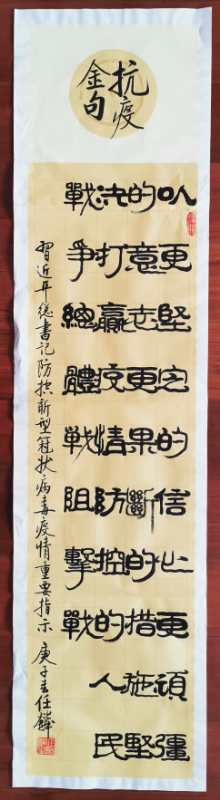 抗疫
金句
以更堅定的信心更頑彊
的意志更果斷的措施堅
決打贏疫情防控的人民
戰爭總體戰阻擊戰
習近平總書記防控新型冠狀病毒疫情重要指示 庚子